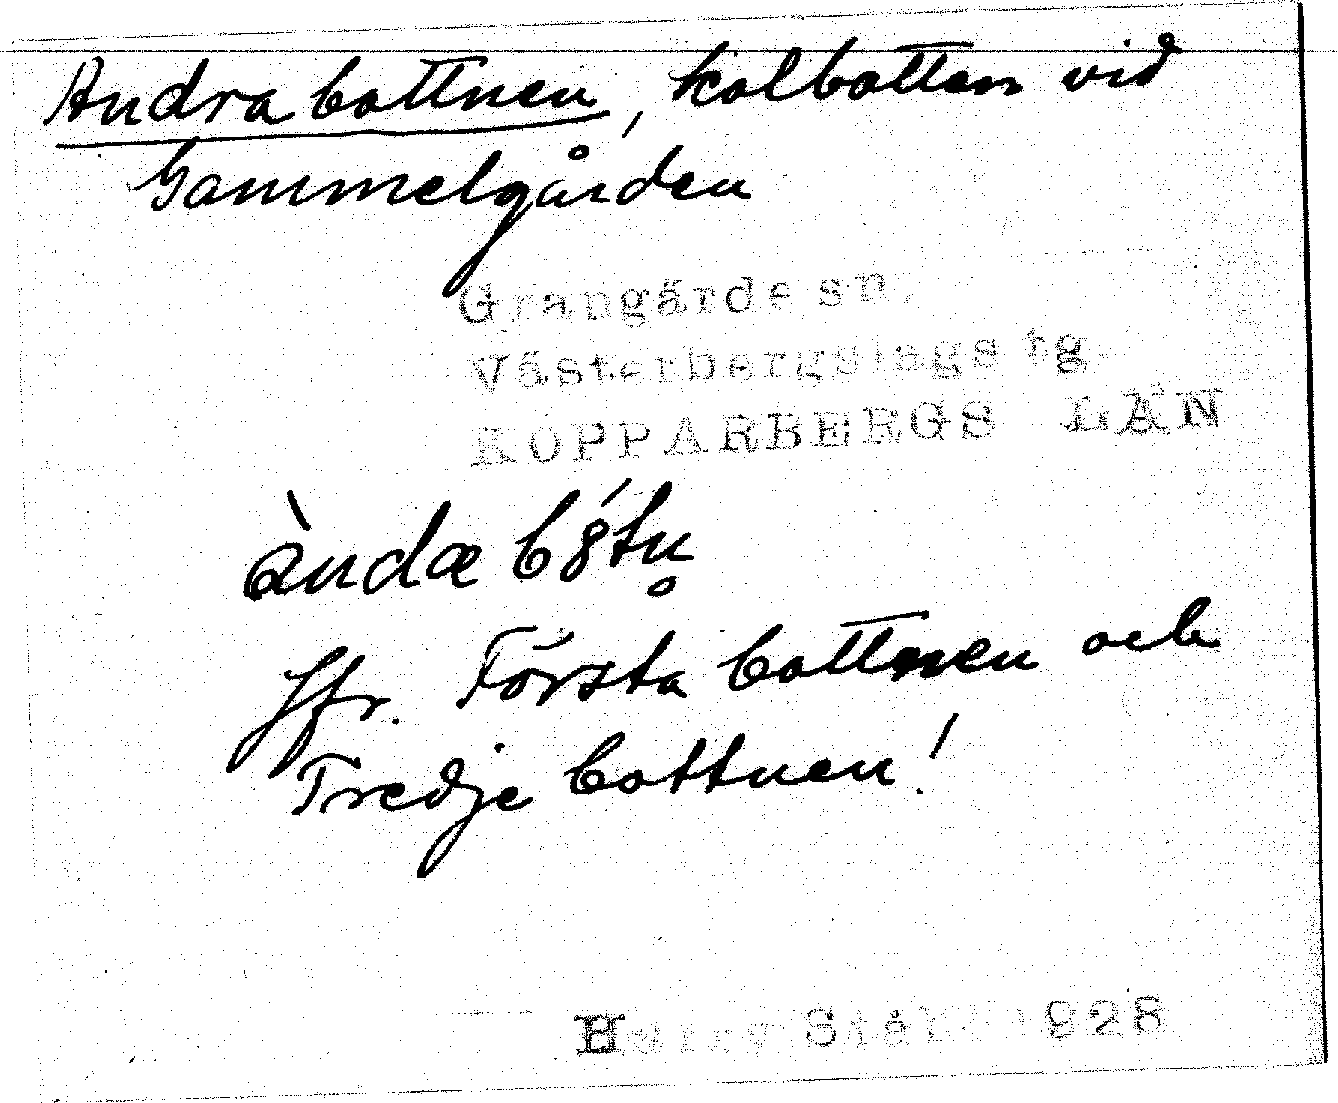 Andra bottnen, kolbotten vid
Gammelgården
Grangärde sn.
Västerbergslags tg
KOPPARBERGS LÄN
Jfr. Första bottnen och
Tredje bottnen!
Harry Ståhl 1928